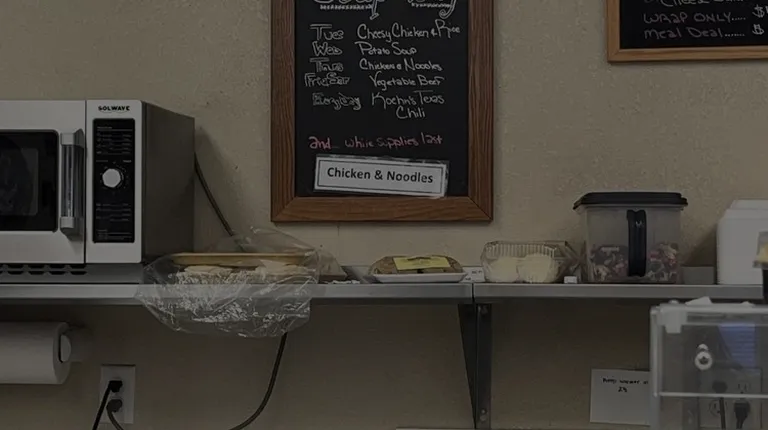 Tues Cheesy Chicken & Rice
Wed Potato Soup
Thurs Chicken & Noodles
Fri & Sat Vegetable Beef
Everyday Koehn's Texas
Chili
and... while supplies last
Chicken & Noodles
WRAP ONLY..... $
Meal Deal....... $
SOLWAVE